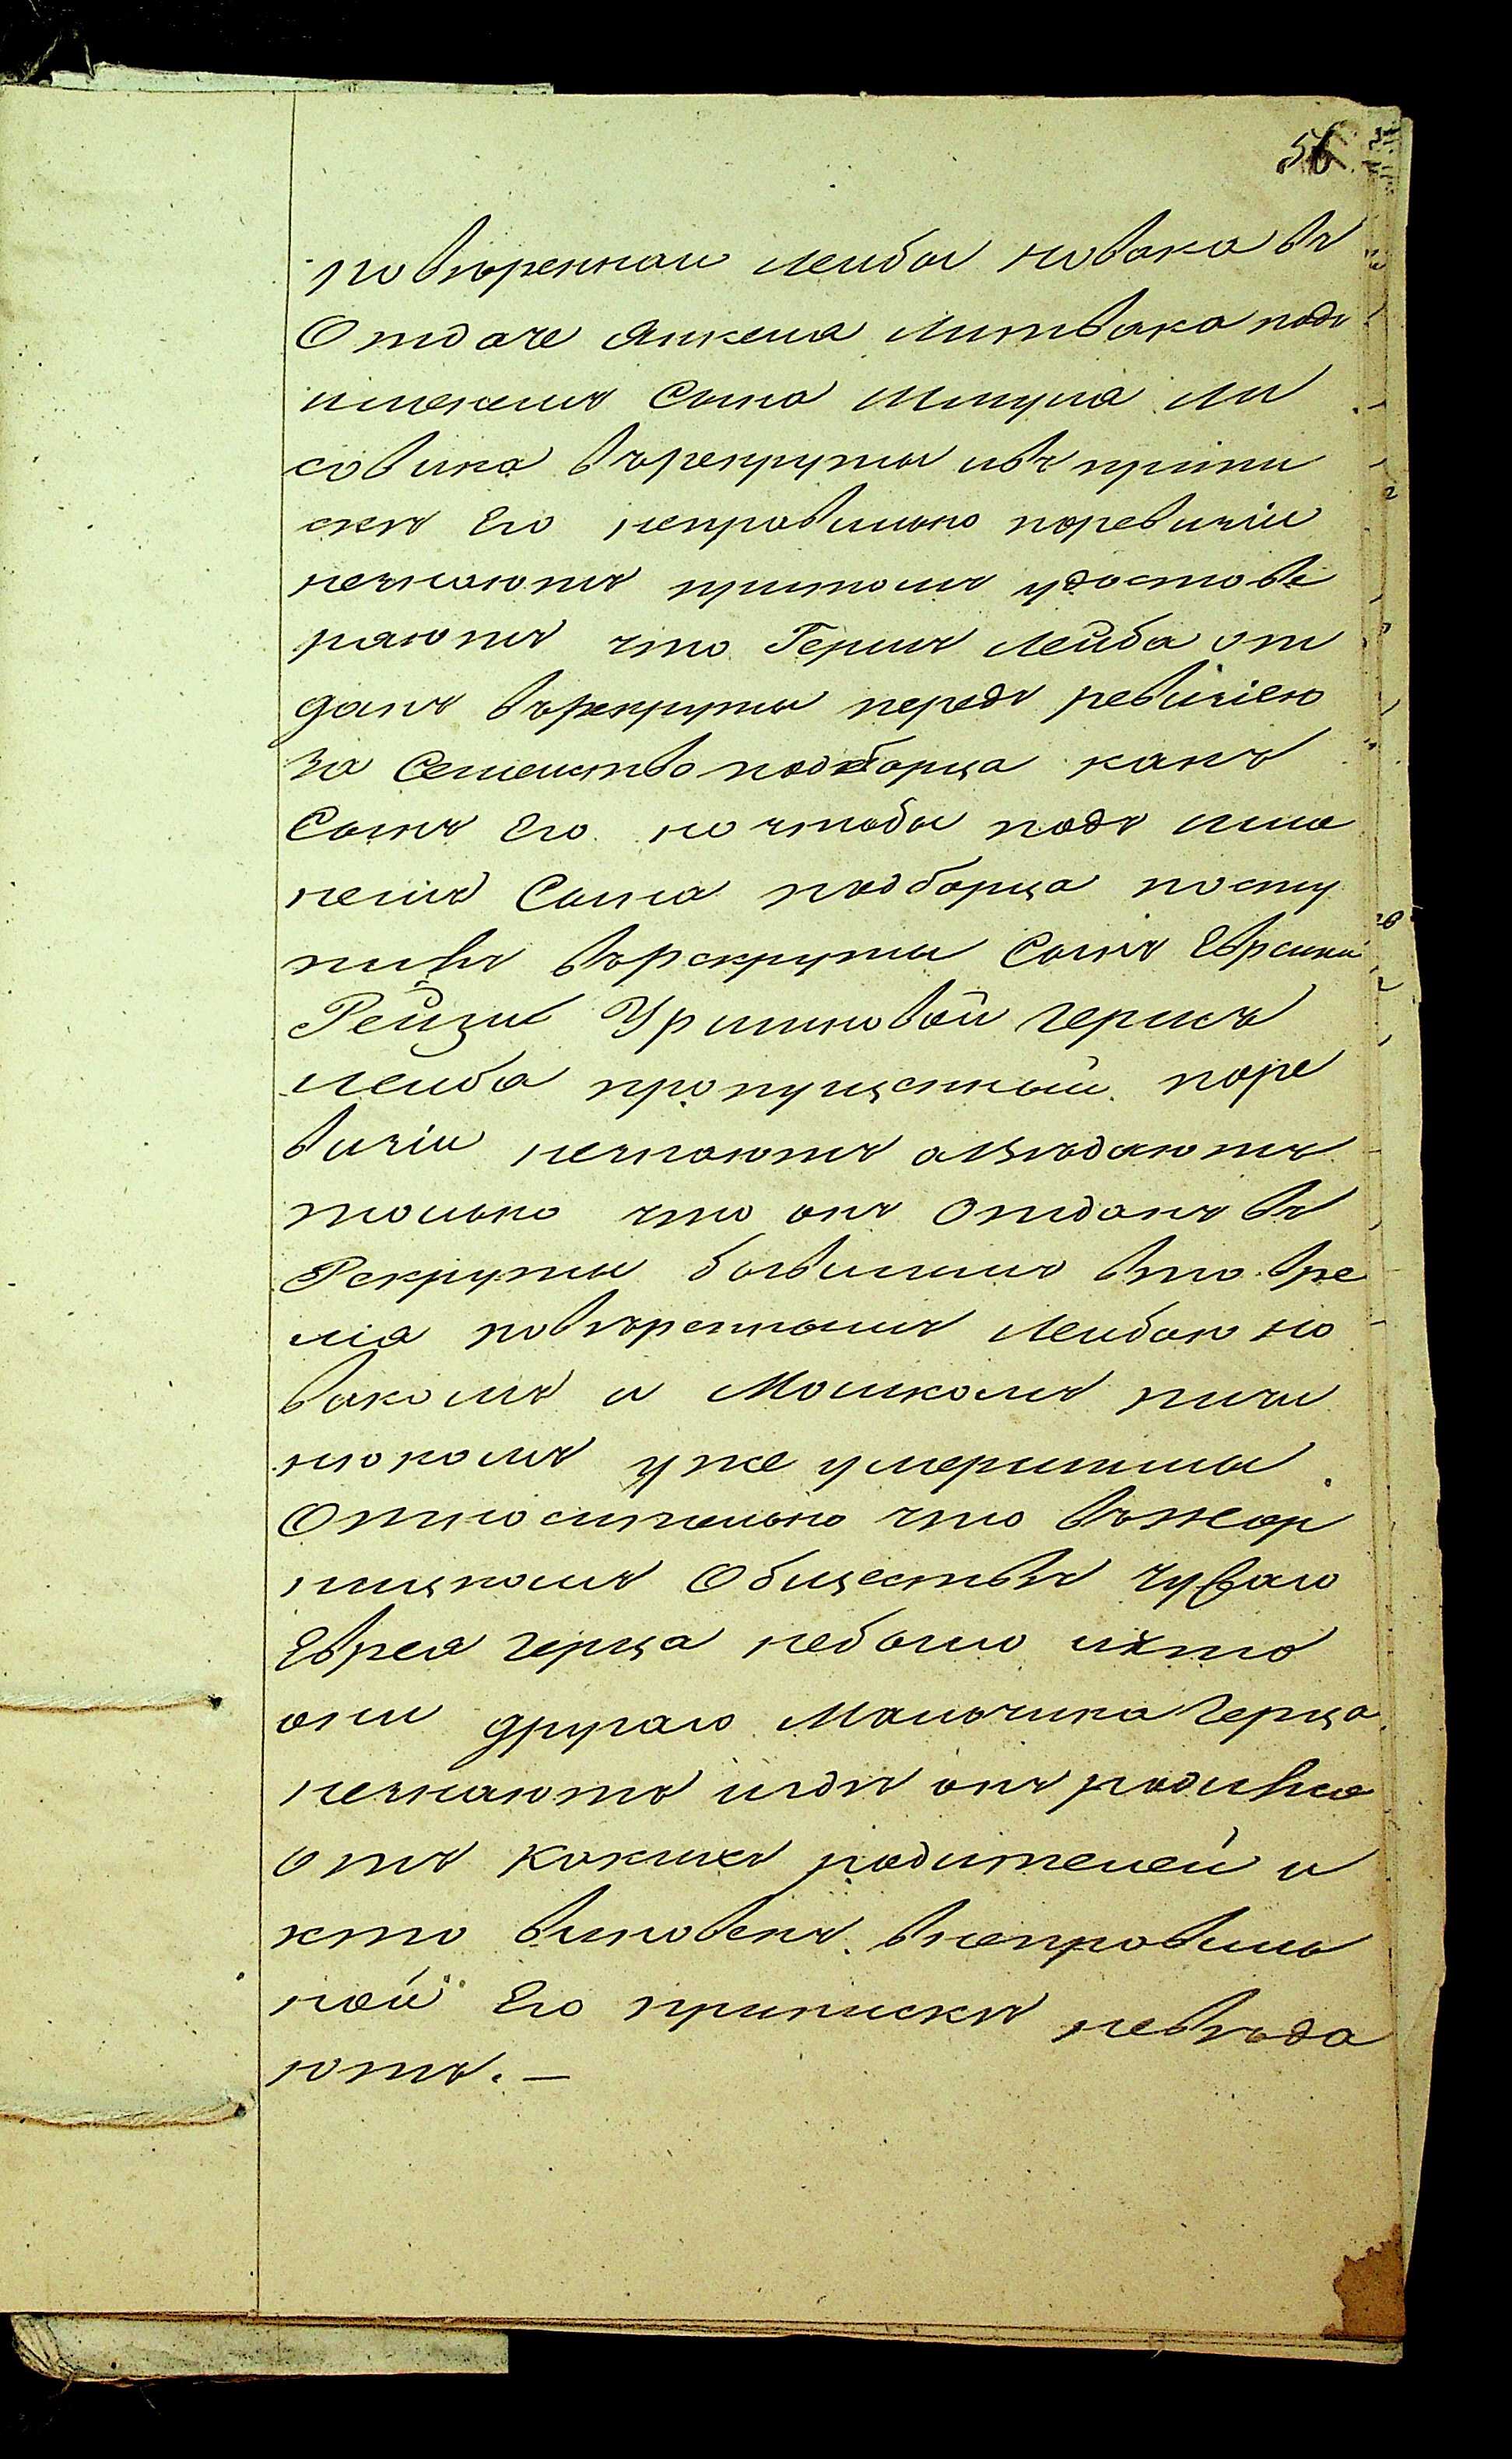 56
повѣреннаи Лейбы Новака въ
Отдаче Янкеля Литвака подъ
именемъ Сына Шмуля Ли
совика върекруты ивъ припи
скѣ Его неправильно поревизіи
незнаютъ притомъ удостовѣ
ряютъ что Гершъ Лейба от
данъ върекруты передъ ревизіею
за Семейство подборца какъ
Сынъ Его но чтобы подъ име
немъ Сына подборца посту
пилъ върекруты Сынъ Еврейки
Рейзи Уришковой Гершъ
Лейба пропущенный поре
визіи незнаютъ авѣдаютъ
только что онъ Отданъ въ
Рекруты бывшимъ вто вре
мя повѣреннымъ Лейбою Но
вакомъ и Мошкомъ пичи
нюкомъ уже умершимы.
Относительно что въжор
нищкомъ Обществѣ чужаго
Еврея Герца небыло ихто
они другаго Мальчика Герца
незнаютъ игдѣ онъ родился
отъ какихъ родителей и
кто виновенъ внеправиль
ной Его припискѣ невѣда
ютъ. —